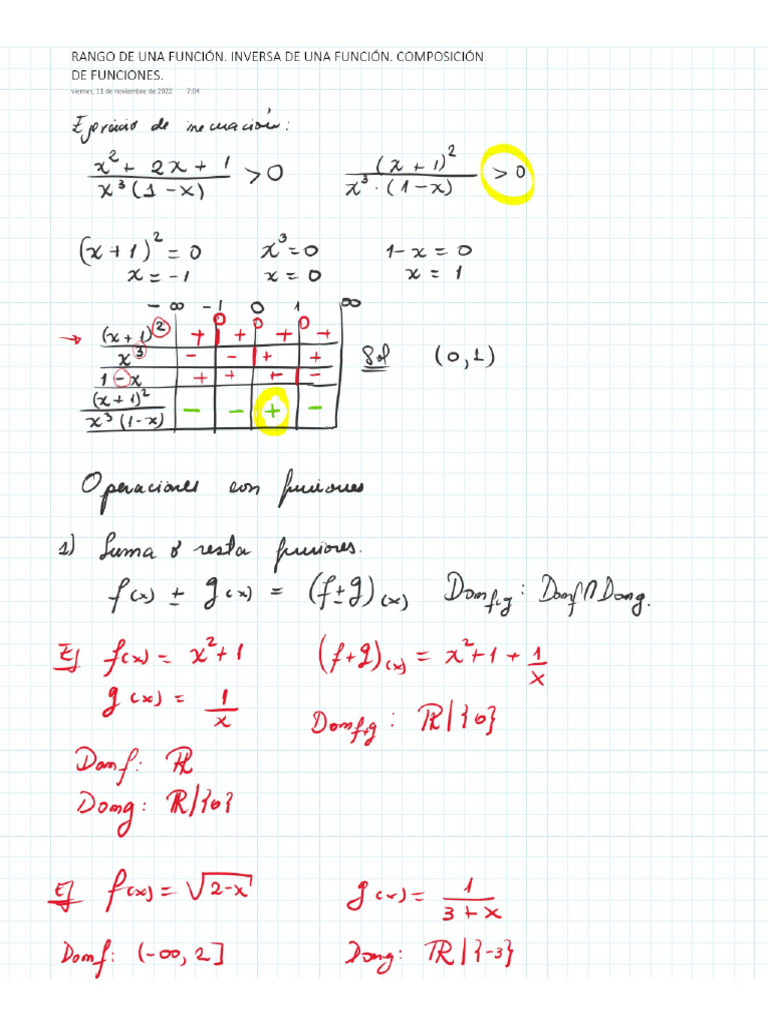 RANGO DE UNA FUNCIÓN. INVERSA DE UNA FUNCIÓN. COMPOSICIÓN
DE FUNCIONES.
viernes, 11 de noviembre de 2022 7:04
Ejercicio de inecuación:
x² + 2x + 1 / x³(1-x) > 0   (x+1)² / x³·(1-x) > 0
(x+1)² = 0   x³ = 0   1-x = 0
x = -1   x = 0   x = 1
-∞ -1 0 1 ∞
0 0 0
→ (x+1)² + + + +
x³ - - + +
1-x + + + -
(x+1)² / x³(1-x) - - + -
Sol (0,1)
Operaciones con funciones
1) Suma o resta funciones.
f(x) ± g(x) = (f±g)(x)   Domf±g: Domf∩Domg.
Ej f(x) = x²+1   (f+g)(x) = x²+1 + 1/x
g(x) = 1/x
Domf+g: ℝ|{0}
Domf: ℝ
Domg: ℝ|{0}
Ej f(x) = √2-x   g(x) = 1/3+x
Domf: (-∞, 2]   Domg: ℝ|{-3}